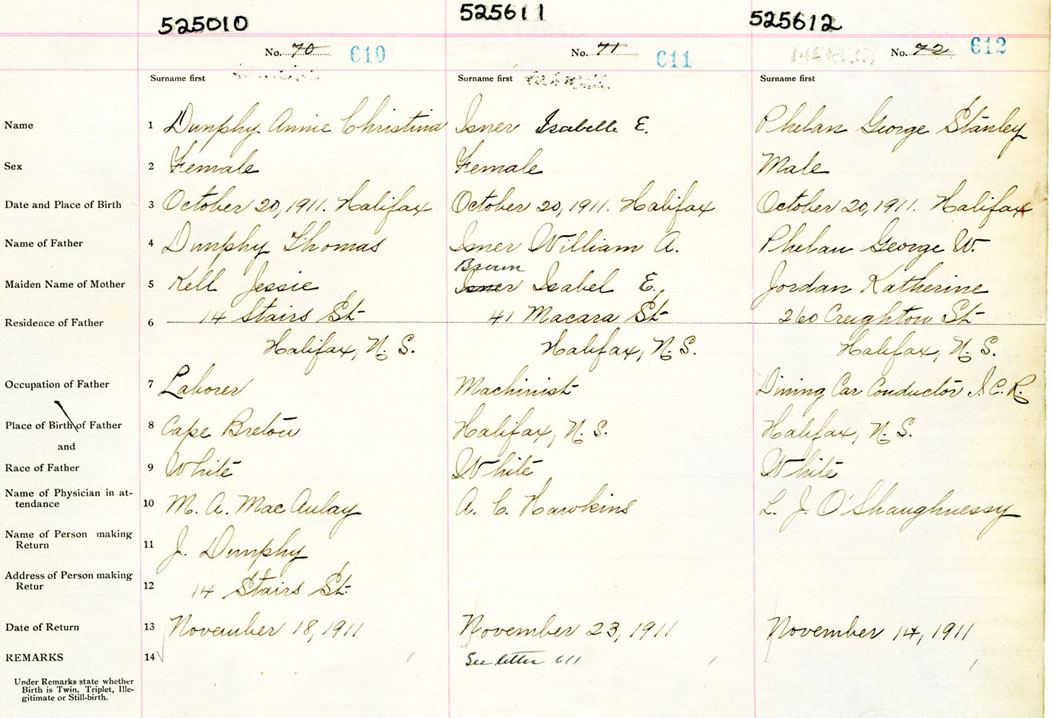 525010 525611 525612
No. 70 610 No. 71 611 No. 72 612
Surname first Surname first Surname first
Name 1 Dunphy Annie Christina Isner Isabelle E. Phelan George Stanley
Sex 2 Female Female Male
Date and Place of Birth 3 October 20, 1911. Halifax October 20, 1911. Halifax October 20, 1911. Halifax
Name of Father 4 Dunphy Thomas Isner William A. Phelan George W.
Brown
Maiden Name of Mother 5 Kell Jessie Isner Isabel E. Jordan Katherine
Residence of Father 6 14 Stairs St 41 Macara St 260 Creighton St
Halifax, N. S. Halifax, N. S. Halifax, N. S.
Occupation of Father 7 Laborer Machinist Dining Car Conductor I. C. R.
Place of Birth of Father 8 Cape Breton Halifax, N. S. Halifax, N. S.
and
Race of Father 9 White White White
Name of Physician in at-
tendance 10 M. A. MacAulay A. C. Hawkins L. J. O'Shaughnessy
Name of Person making
Return 11 J. Dunphy
Address of Person making
Retur 12 14 Stairs St.
Date of Return 13 November 18, 1911 November 23, 1911 November 14, 1911
REMARKS 14 See letter 611
Under Remarks state whether
Birth is Twin, Triplet, Ille-
gitimate or Still-birth.